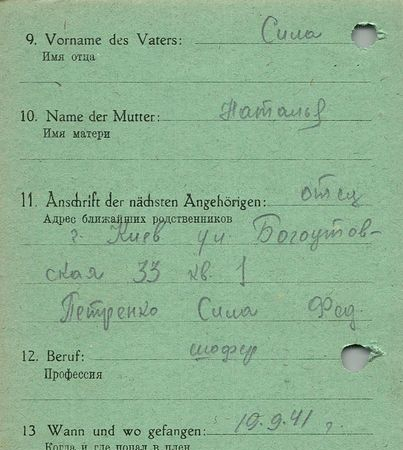 9. Vorname des Vaters: Сила
Имя отца
10. Name der Mutter: Наталья
Имя матери
11. Anschrift der nächsten Angehörigen: отец
Адрес ближайших родственников
г. Киев ул. Богоутов-
ская 33 кв. 1
Петренко Сила Фед
12. Beruf: шофер
Профессия
13 Wann und wo gefangen: 19.9.41 г.
Когда и где попал в плен